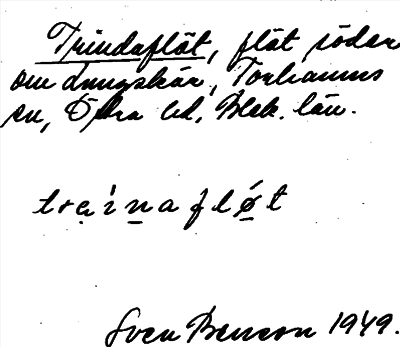 Trindaflöt, flöt söder
om Lungskär, Torhamns
sn, Östra hd, Blek. län.
trai̇naflǿ̱t
Sven Benson 1949.